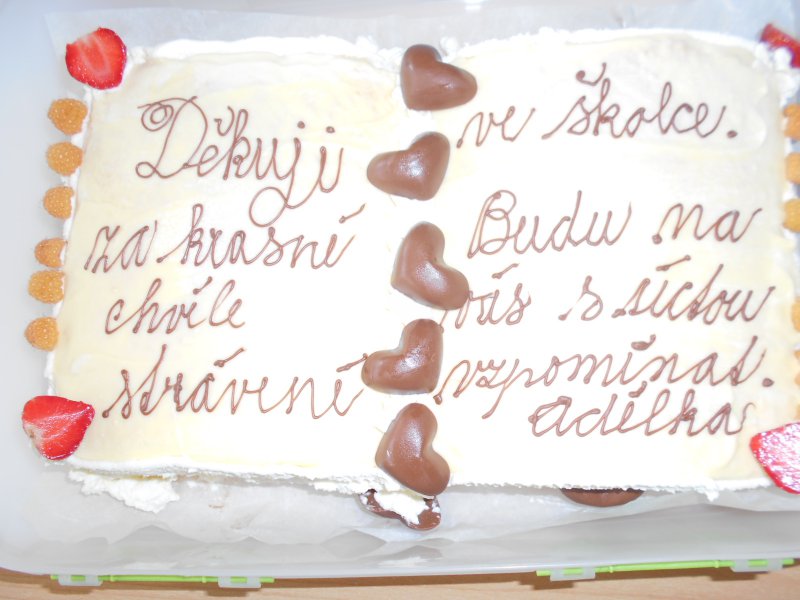 Děkuji
za krásné
chvíle
strávené
ve školce.
Budu na
vás s úctou
vzpomínat.
Adélka